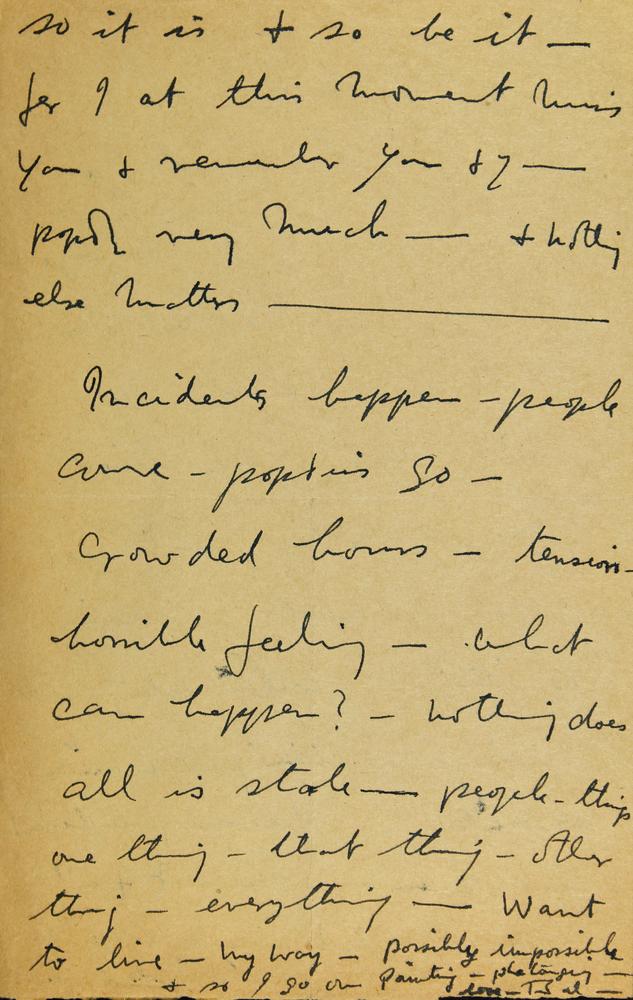 so it is & so be it —
for I at this moment miss
you & remember you & I —
very much — & nothing
else matters —
Incidents happen – people
come – go –
Crowded hours – tension –
horrible feeling – what
can happen? – nothing does
all is stale — people – things
one thing – that thing – other
thing – everything — Want
to live – my way – possibly impossible
& so I go on painting –
love –